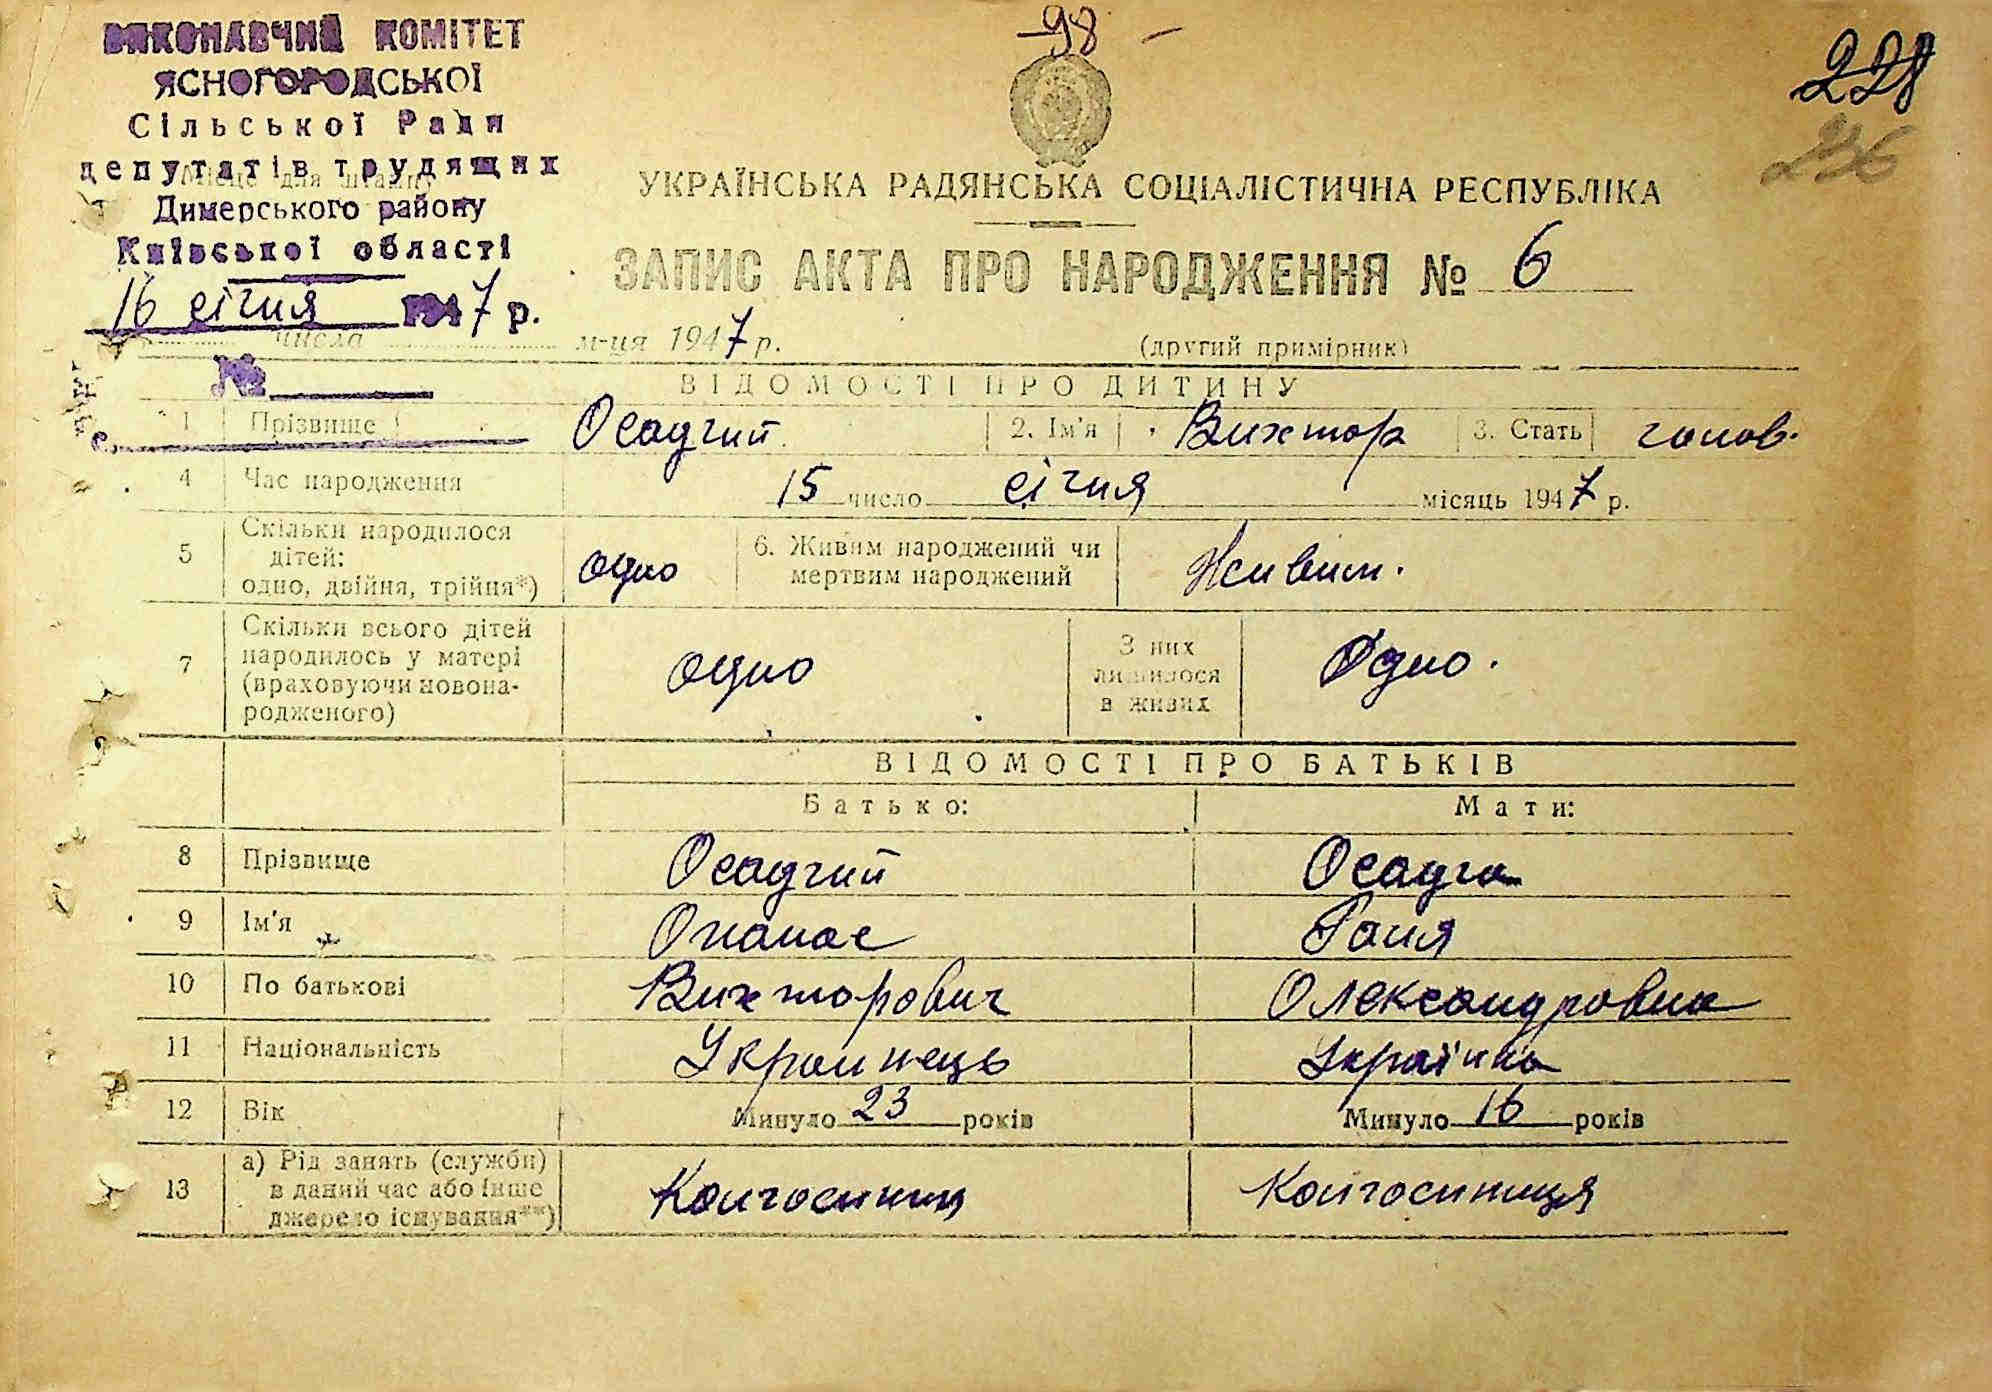 -98-
228
236
ВИКОНАВЧИЙ КОМІТЕТ
ЯСНОГОРОДСЬКОЇ
Сільської Ради
депутатів трудящих
Димерського району
Київської області
16 січня 1947 р.
№
Місце для штампу
УКРАЇНСЬКА РАДЯНСЬКА СОЦІАЛІСТИЧНА РЕСПУБЛІКА
ЗАПИС АКТА ПРО НАРОДЖЕННЯ № 6
числа м-ця 1947 р. (другий примірник)
ВІДОМОСТІ ПРО ДИТИНУ
1 Прізвище Осадчий 2. Ім'я Виктор 3. Стать голов.
4 Час народження 15 число січня місяць 1947 р.
5 Скільки народилося дітей: одно, двійня, трійня*) одно 6. Живим народжений чи мертвим народжений Живим.
7 Скільки всього дітей народилось у матері (враховуючи новонародженого) одно З них лишилося в живих Одно.
ВІДОМОСТІ ПРО БАТЬКІВ
Батько: Мати:
8 Прізвище Осадчий Осадча
9 Ім'я Опанас Ганя
10 По батькові Викторович Олександровна
11 Національність Украинець Українка
12 Вік Минуло 23 років Минуло 16 років
13 а) Рід занять (служби) в даний час або інше джерело існування**) Колгоспниц Колгоспниця